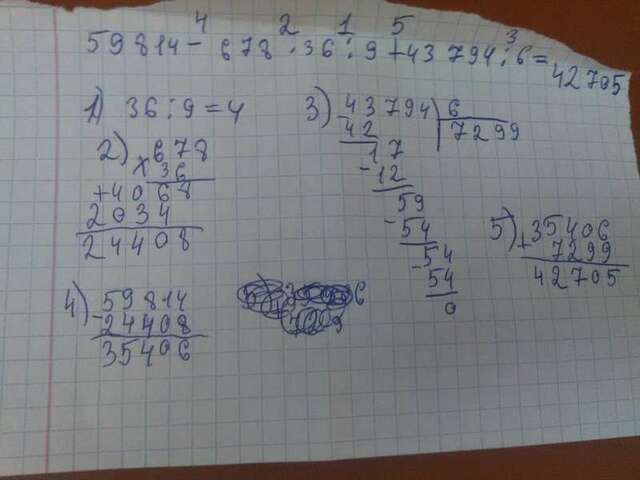 4 2 1 5 3
59814 - 678 · 36 : 9 + 43794 : 6 = 42705
1) 36 : 9 = 4
2) × 678
36
+ 4068
2034
24408
3) 43794 | 6
- 42 | 7299
17
- 12
59
- 54
- 54
54
0
4) - 59814
24408
35406
5) + 35406
7299
42705